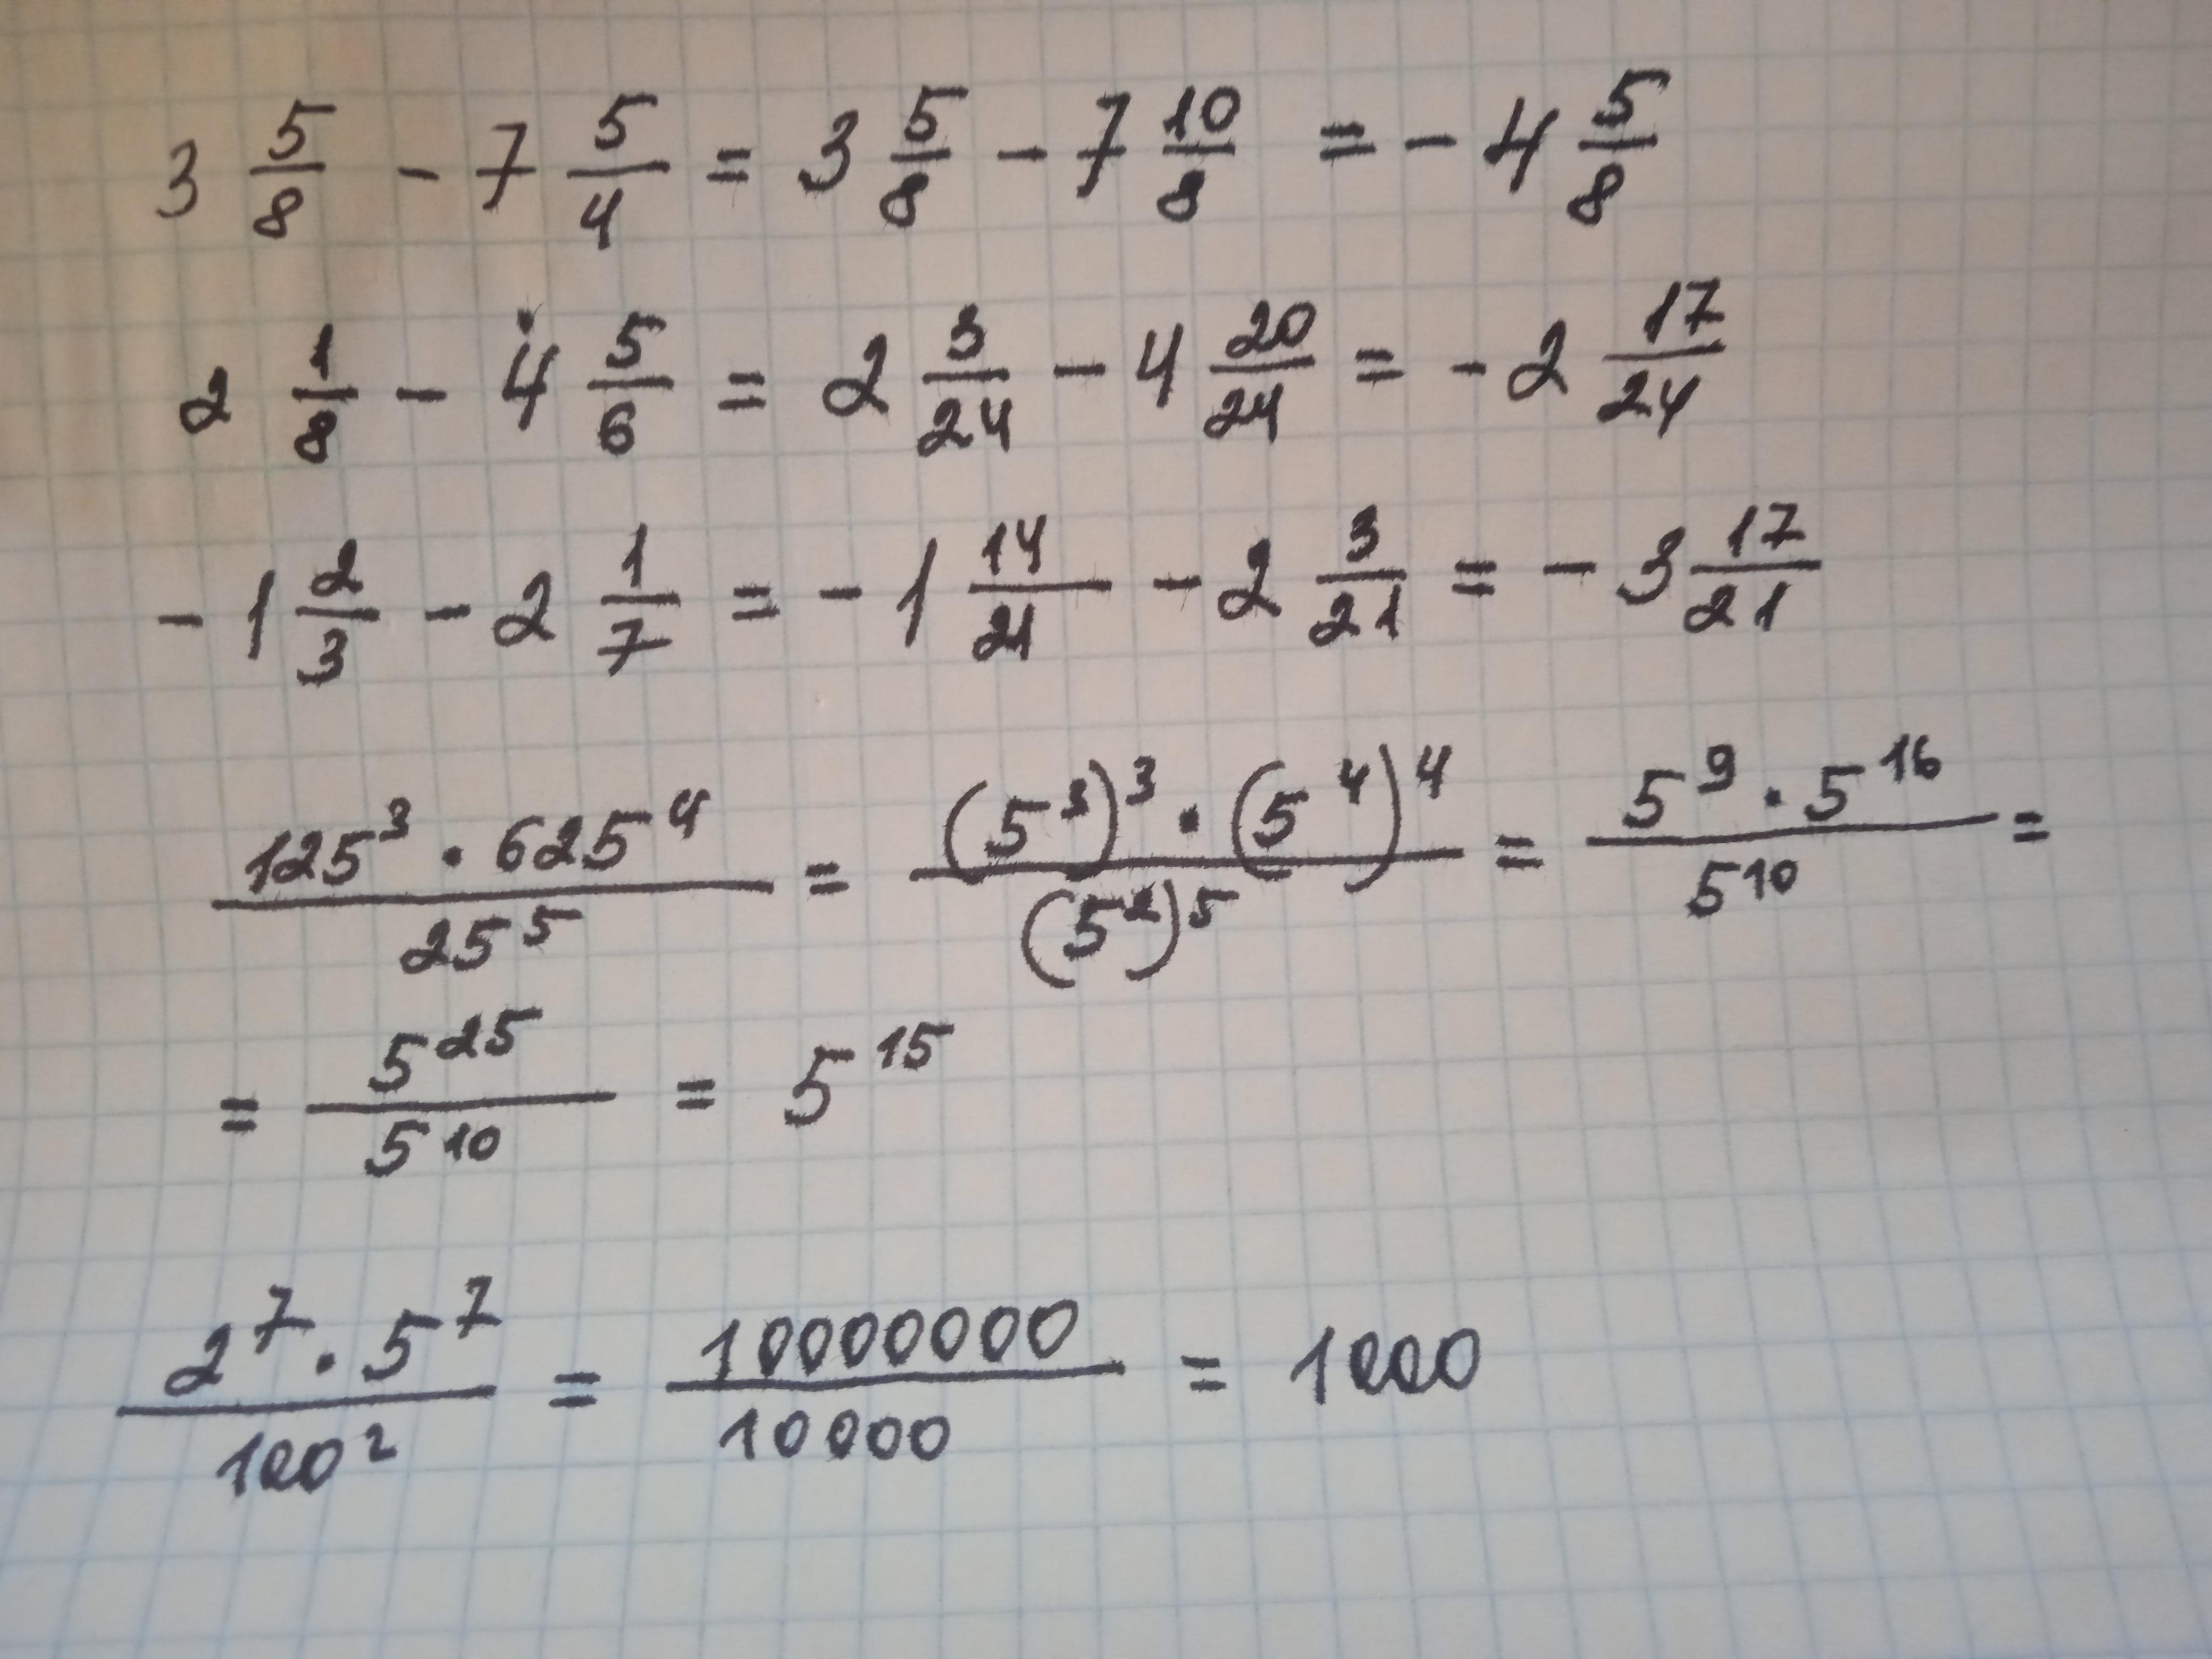 3 5/8 - 7 5/4 = 3 5/8 - 7 10/8 = - 4 5/8
2 1/8 - 4 5/6 = 2 3/24 - 4 20/24 = - 2 17/24
- 1 2/3 - 2 1/7 = - 1 14/21 - 2 3/21 = - 3 17/21
(125^3 · 625^4)/(25^5) = ((5^3)^3 · (5^4)^4)/((5^2)^5) = (5^9 · 5^16)/(5^10) =
= 5^25/5^10 = 5^15
(2^7 · 5^7)/(100^2) = 10000000/10000 = 1000